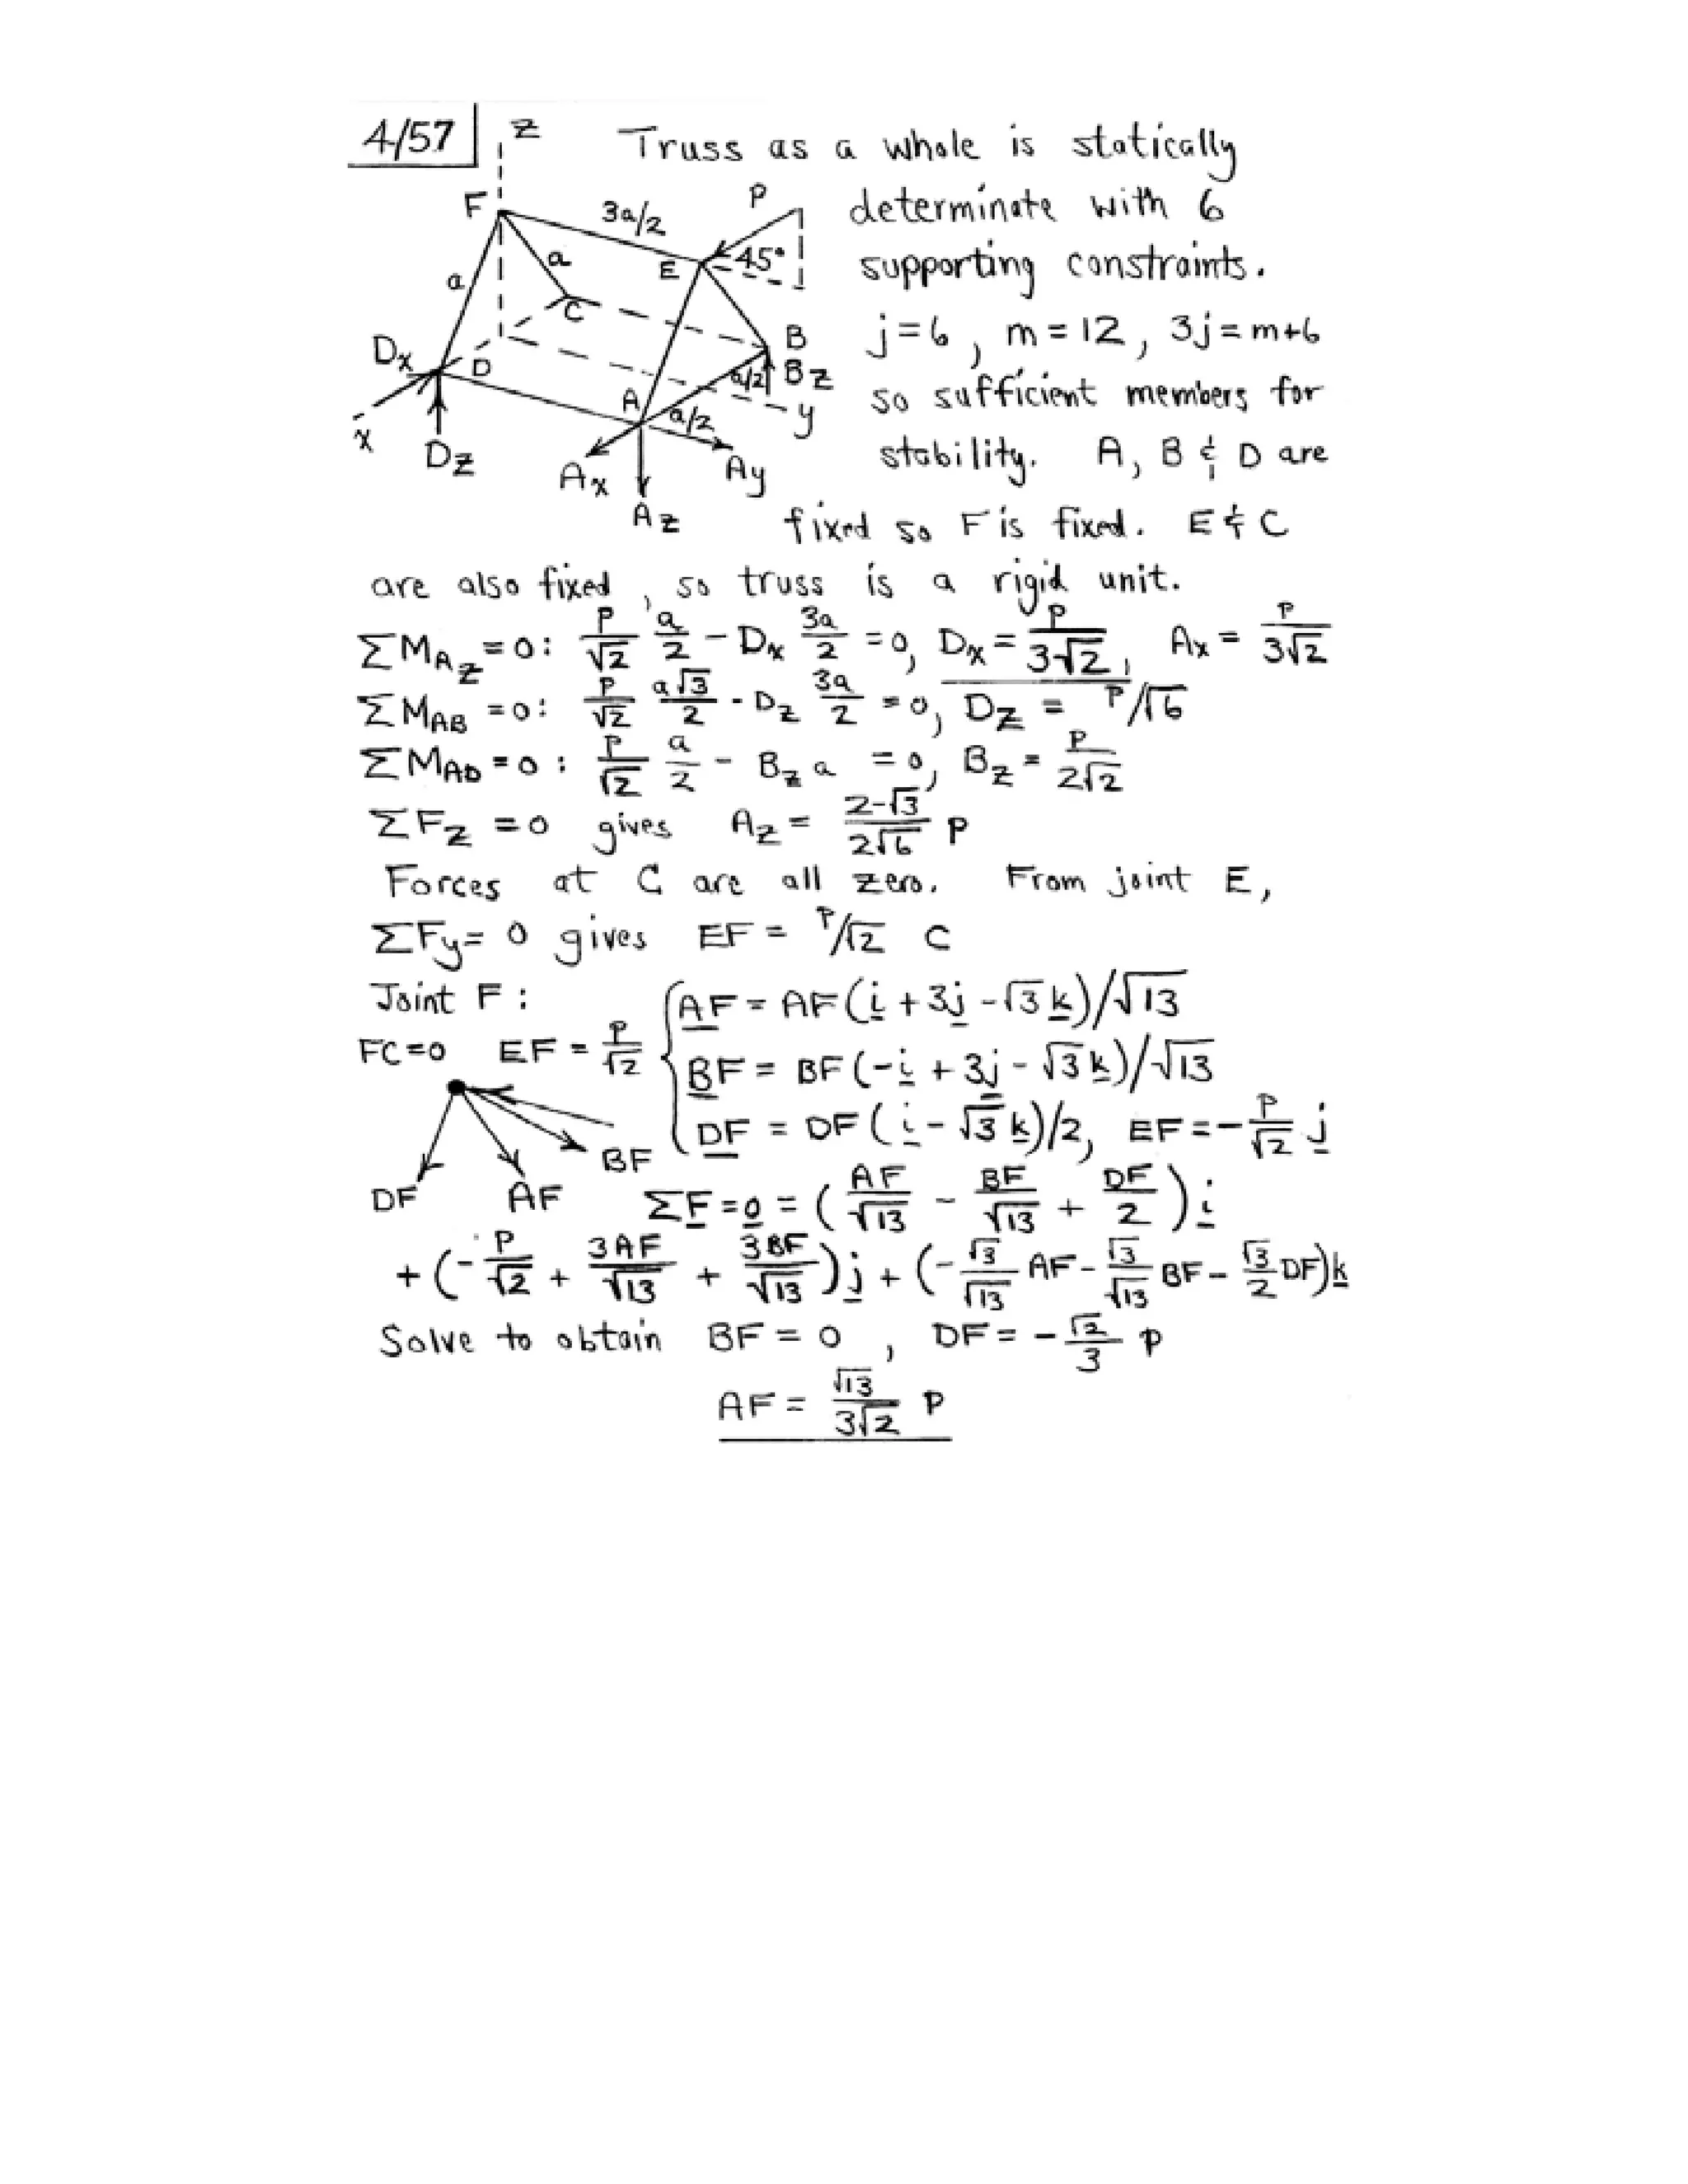 4/57
z Truss as a whole is statically
F 3a/2 P determinate with 6
a a E 45° supporting constraints.
C
Dx D B Bz j=6, m=12, 3j=m+6
a/2
x A a/2 y so sufficient members for
Dz Ax Ay stability. A, B & D are
Az fixed so F is fixed. E & C
are also fixed, so truss is a rigid unit.
ΣM_Az = 0: P/√2 a/2 - Dx 3a/2 = 0, Dx = P/3√2, Ax = P/3√2
ΣM_AB = 0: P/√2 a√3/2 - Dz 3a/2 = 0, Dz = P/√6
ΣM_AD = 0: P/√2 a/2 - Bz a = 0, Bz = P/2√2
ΣFz = 0 gives Az = (2-√3)/(2√6) P
Forces at C are all zero. From joint E,
ΣFy = 0 gives EF = P/√2 C
Joint F: AF = AF(i + 3j - √3 k)/√13
FC=0 EF = P/√2 BF = BF(-i + 3j - √3 k)/√13
DF = DF(i - √3 k)/2, EF = -P/√2 j
BF
DF AF ΣF = 0 = (AF/√13 - BF/√13 + DF/2) i
+ (-P/√2 + 3AF/√13 + 3BF/√13) j + (-√3/√13 AF - √3/√13 BF - √3/2 DF) k
Solve to obtain BF = 0, DF = -√2/3 P
AF = √13/3√2 P